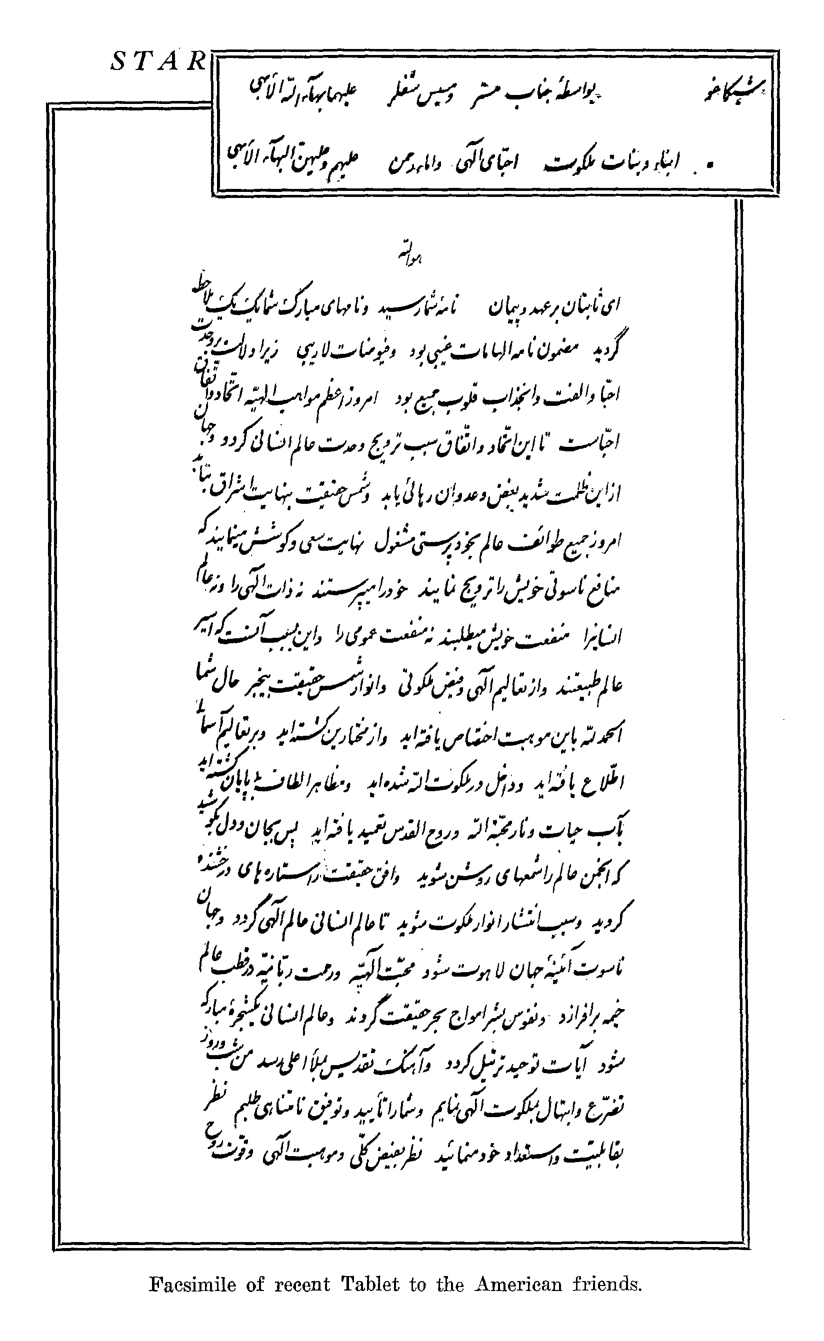 STAR
شیکاغو بواسطهٔ جناب مستر و مسیس شفلر علیهما بهآء اللّه الأبهی
ابناء و بنات ملکوت احبّای الٓهی و اماء رحمن علیهم و علیهنّ البهآء الأبهی
هواللّه
ای ثابتان بر عهد و پیمان نامهٔ شما رسید و نامهای مبارک شما یک یک ملاحظه
گردید مضمون نامه الهامات غیبی بود و فیوضات لاریبی زیرا دلالت بر وحدت
احبّا و الفت و انجذاب قلوب جمیع بود امروز اعظم مواهب الهیّه اتّحاد و اتّفاق
احبّاست تا این اتّحاد و اتّفاق سبب ترویج وحدت عالم انسانی گردد و جهان
از این ظلمت شدید بغض و عدوان رهائی یابد و شمس حقیقت بنهایت اشراق بتابد
امروز جمیع طوائف عالم بخودپرستی مشغول نهایت سعی و کوشش مینمایند که
منافع ناسوتی خویش را ترویج نمایند خود را میپرستند نه ذات الٓهی را و نه عالم
انسانی را منفعت خویش میطلبند نه منفعت عمومی را و این بسبب آنست که اسیر
عالم طبیعتند و از تعالیم الٓهی و فیض ملکوتی و انوار شمس حقیقت بیخبر حال شما
الحمد للّه باین موهبت اختصاص یافته‌اید و از مختارین گشته‌اید و بر تعالیم آسمانی
اطّلاع یافته‌اید و داخل در ملکوت اللّه شده‌اید و مظاهر الطاف بی‌پایان گشته‌اید
بآب حیات و نار محبّة اللّه و روح القدس تعمید یافته‌اید پس بجان و دل بکوشید
که انجمن عالم را شمعهای روشن شوید و افق حقیقت را ستاره‌های درخشنده
گردید و سبب انتشار انوار ملکوت شوید تا عالم انسانی عالم الٓهی گردد و جهان
ناسوت آئینهٔ جهان لاهوت شود محبّت الٓهیّه و رحمت ربّانیّه در قطب عالم
خیمه برافرازد و نفوس بشر امواج بحر حقیقت گردند و عالم انسانی یک شجرهٔ مبارکه
شود آیات توحید ترتیل گردد و آهنگ تقدیس بملأ اعلی رسد من شب و روز
تضرّع و ابتهال بملکوت الٓهی نمایم و شما را تأیید و توفیق نامتناهی طلبم نظر
بقابلیّت و استعداد خود منمائید نظر بفیض کلّی و موهبت الٓهی و قوّت روح
Facsimile of recent Tablet to the American friends.